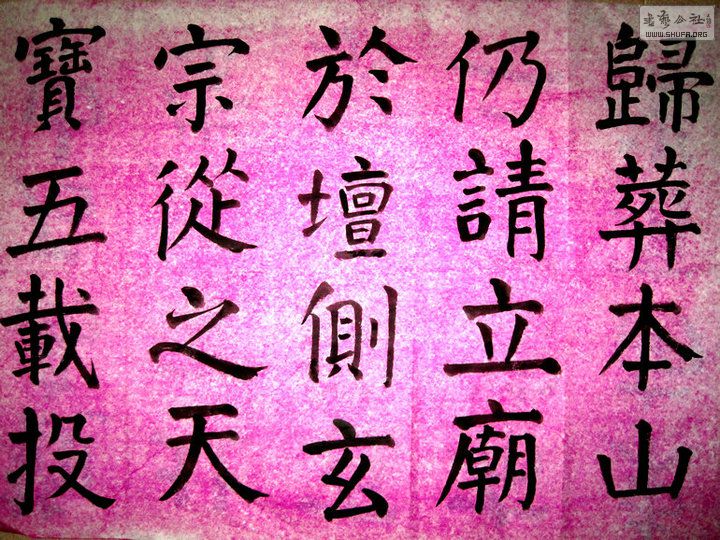 歸葬本山
仍請立廟
於壇側玄
宗從之天
寶五載投
書藝公社
WWW.SHUFA.ORG